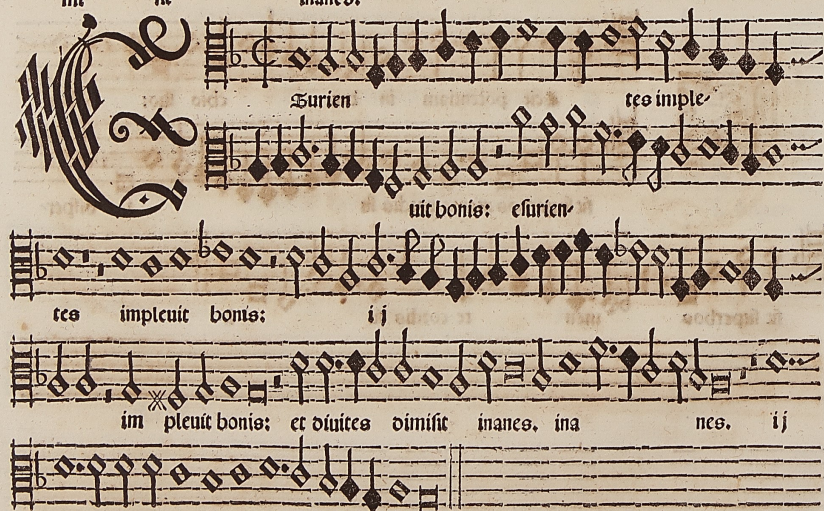 inanes.
ESurien tes imple-
uit bonis: esurien-
tes impleuit bonis: ij
im pleuit bonis: et diuites dimisit inanes. ina nes. ij